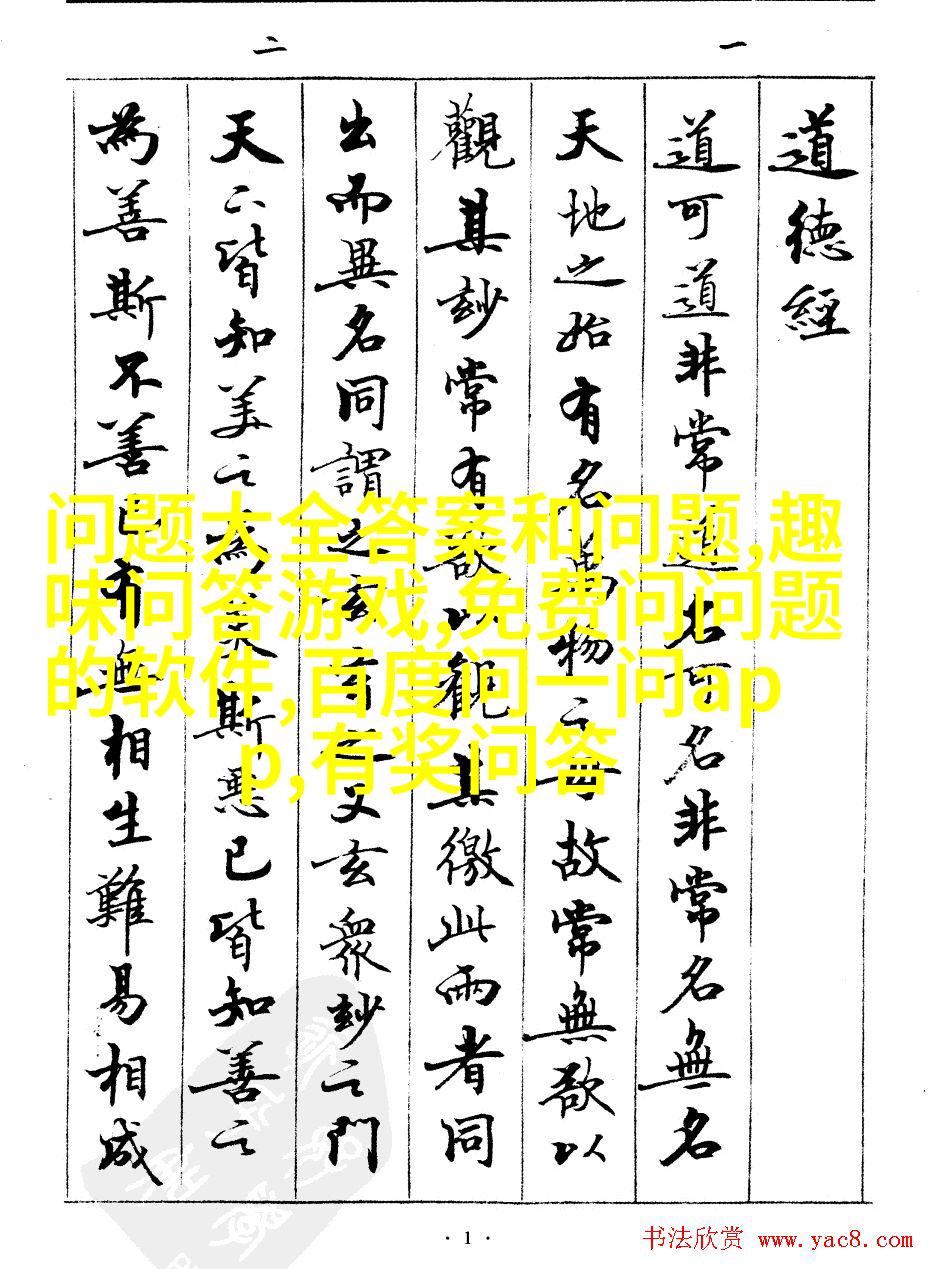 一
二
道德經
道可道非常道名可名非常名無名
天地之始有名萬物之母故常無欲以
觀其玅常有欲以觀其徼此兩者同
出而異名同謂之玄玄之又玄眾玅之門
天下皆知美之為美斯惡已皆知善之
為善斯不善已有無相生難易相成
问题大全答案和问题,趣
味问答游戏,免费问问题
的软件,百度问一问ap
p,有奖问答
· 1 ·
书法欣赏 www.yac8.com